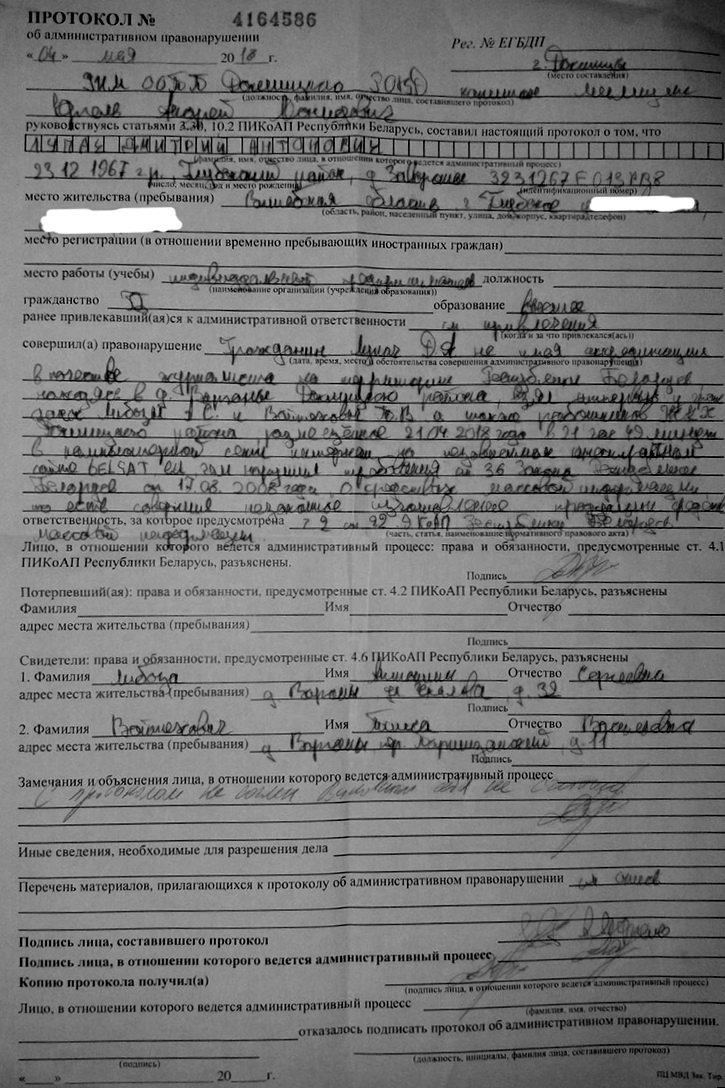 ПРОТОКОЛ № 4164586
об административном правонарушении
« 04 » мая 2018 г. Рег. № ЕГБДП
г. Докшицы
(место составления)
Докшицкого РОВД
(должность, фамилия, имя, отчество лица, составившего протокол)
Андрей
руководствуясь статьями 3.30, 10.2 ПИКоАП Республики Беларусь, составил настоящий протокол о том, что
ЛУПАЧ ДМИТРИЙ АНТОНОВИЧ
(фамилия, имя, отчество лица, в отношении которого ведется административный процесс)
23.12.1967 г.р., Глубокский район, д.
(число, месяц, год и место рождения) (идентификационный номер)
место жительства (пребывания) Витебская область г. Глубокое
(область, район, населенный пункт, улица, дом, корпус, квартира, телефон)
место регистрации (в отношении временно пребывающих иностранных граждан)
место работы (учебы) индивидуальный предприниматель должность
(наименование организации (учреждения образования))
гражданство образование высшее
ранее привлекавший(ая)ся к административной ответственности см привлечения
(когда и за что привлекался(ась))
совершил(а) правонарушение Гражданин Лупач Д.А. не имея аккредитации
(дата, время, место и обстоятельства совершения административного правонарушения)
в качестве журналиста на территории Республики Беларусь
находясь в д. Докшицкого района, взял интервью у граж
и Войтехович Т.В а также работников ЖКХ
Докшицкого района размещённое 21.04.2018 года в 21 час 49 минут
в сети интернет на
сайте BELSAT.eu, чем нарушил требования ст 36 Закона Республики
Беларусь от 17.08.2008 года О средствах массовой информации
то есть совершил незаконное изготовление продукции средств
ответственность, за которое предусмотрена ч 2 ст 22.9 КоАП Республики Беларусь
массовой информации. (часть, статья, наименование нормативного правового акта)
Лицо, в отношении которого ведется административный процесс: права и обязанности, предусмотренные ст. 4.1
ПИКоАП Республики Беларусь, разъяснены.
Подпись
Потерпевший(ая): права и обязанности, предусмотренные ст. 4.2 ПИКоАП Республики Беларусь, разъяснены
Фамилия Имя Отчество
адрес места жительства (пребывания)
Подпись
Свидетели: права и обязанности, предусмотренные ст. 4.6 ПИКоАП Республики Беларусь, разъяснены
1. Фамилия Имя Отчество Сергеевна
адрес места жительства (пребывания) д. д. 32
Подпись
2. Фамилия Войтехович Имя Отчество Васильевна
адрес места жительства (пребывания) д. д. 11
Подпись
Замечания и объяснения лица, в отношении которого ведется административный процесс
С протоколом не согласен виновным себя не считаю
Иные сведения, необходимые для разрешения дела
Перечень материалов, прилагающихся к протоколу об административном правонарушении
Подпись лица, составившего протокол
Подпись лица, в отношении которого ведется административный процесс
Копию протокола получил(а)
(подпись лица, в отношении которого ведется административный процесс)
Лицо, в отношении которого ведется административный процесс
(фамилия, имя, отчество)
отказалось подписать протокол об административном правонарушении.
(подпись) (должность, инициалы, фамилия лица, составившего протокол)
« » 20 г.